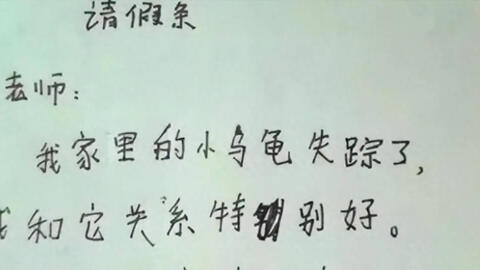 请假条
老师：
我家里的小乌龟失踪了，
我和它关系特别好。